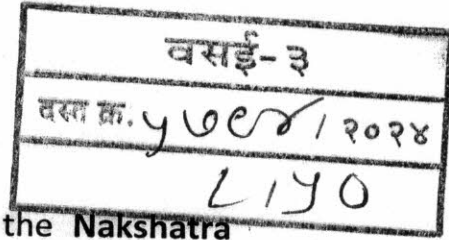 वसई-३
दस्त क्र. ५७९४ / २०२४
८/५०
the Nakshatra